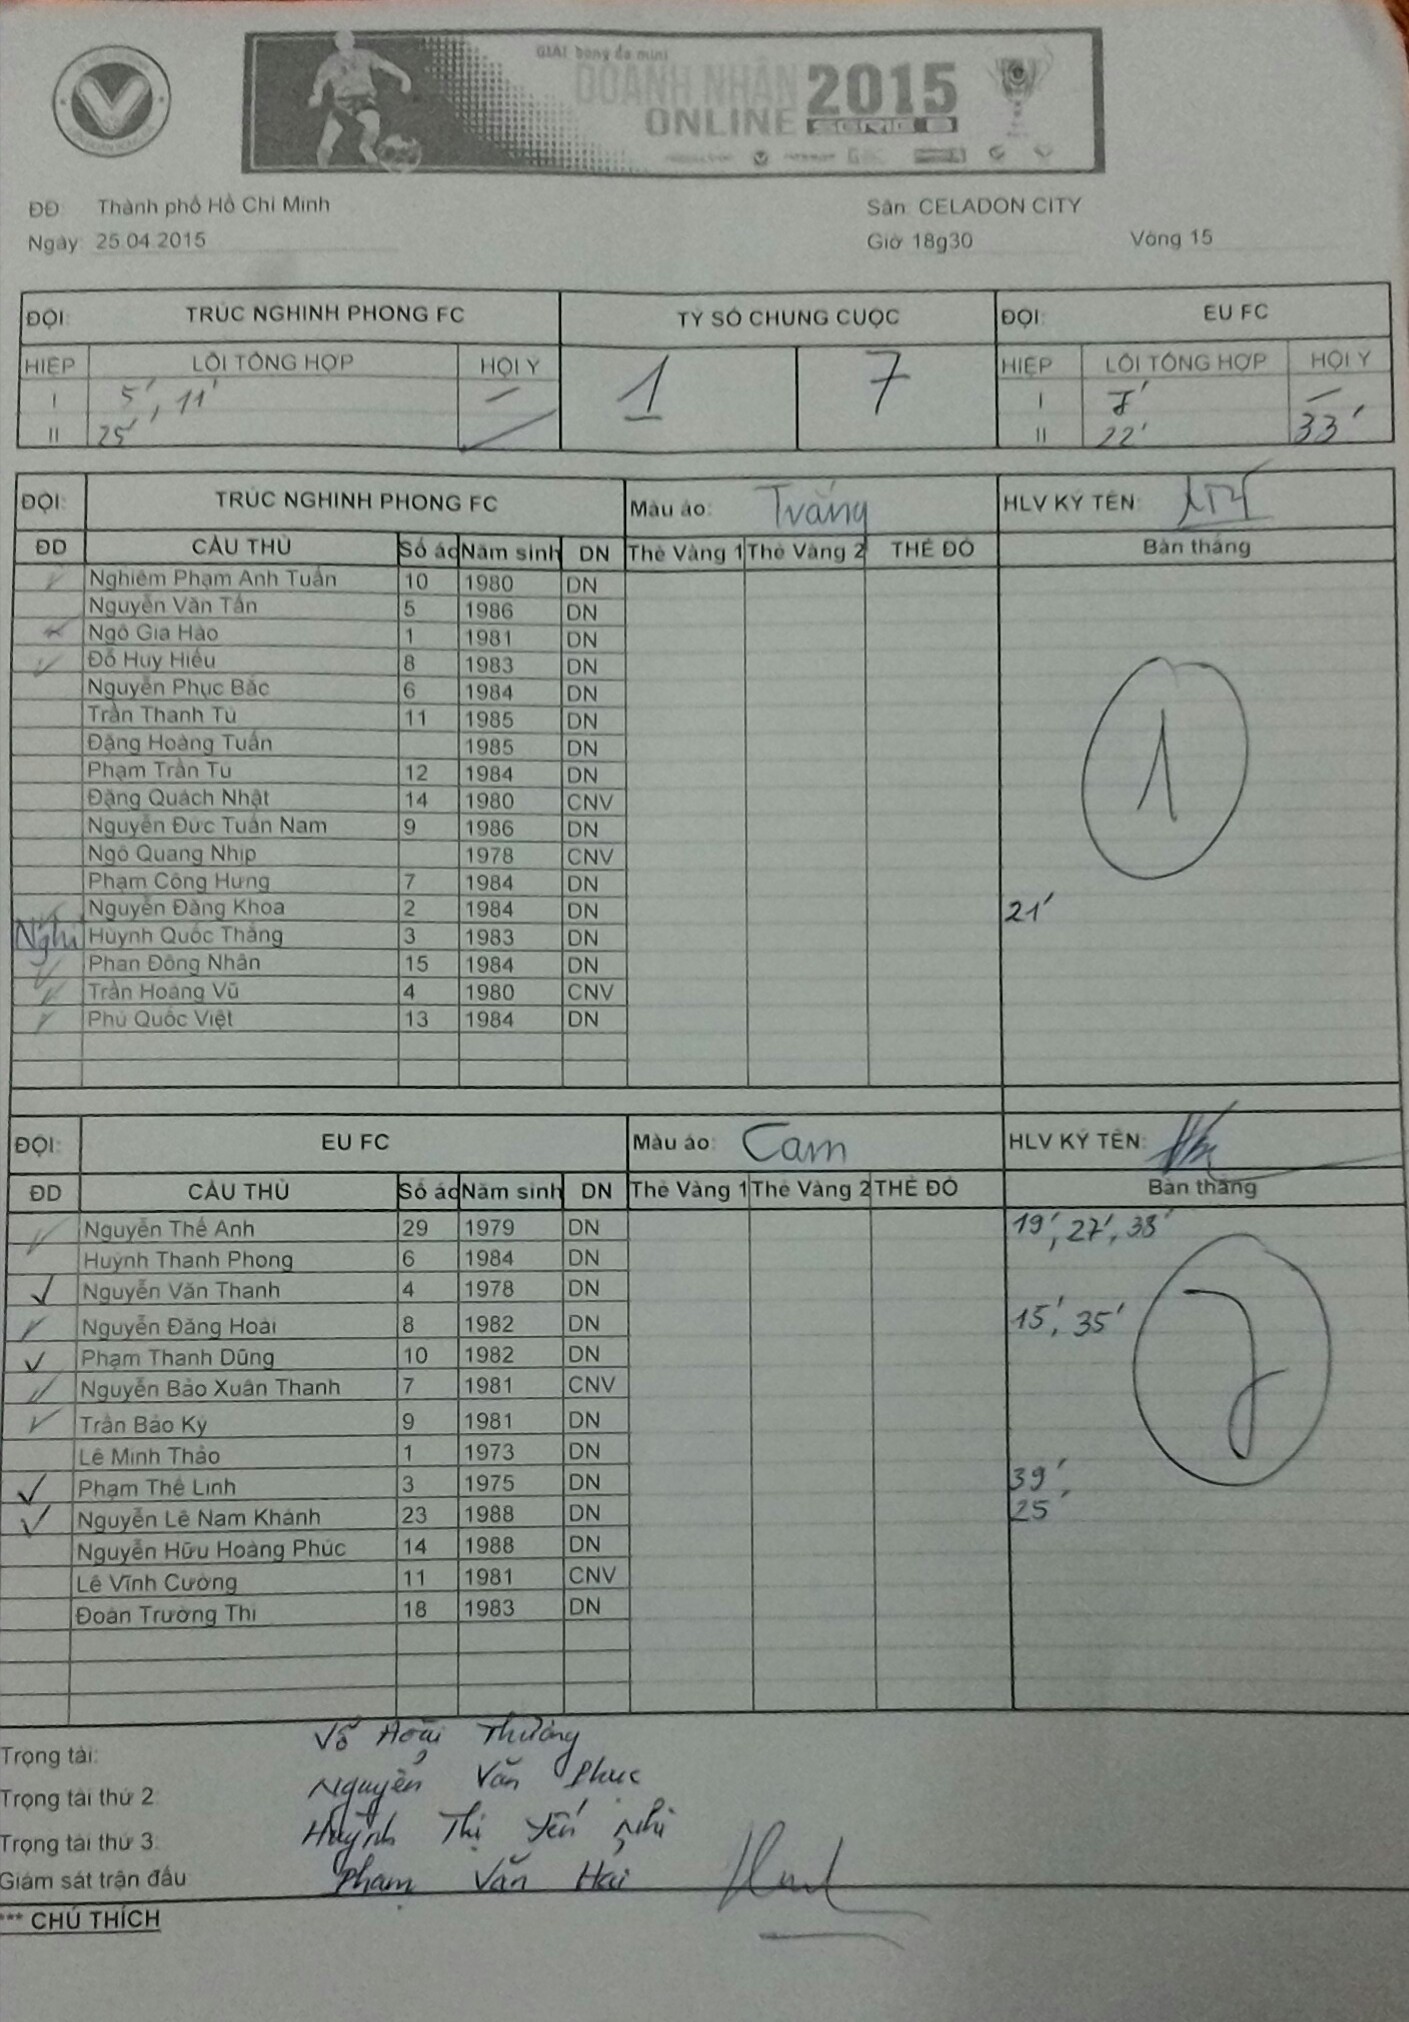 GIẢI bóng đá mini
DOANH NHÂN 2015
ONLINE SERIE B
ĐĐ: Thành phố Hồ Chí Minh Sân: CELADON CITY
Ngày: 25.04.2015 Giờ 18g30 Vòng 15
ĐỘI: TRÚC NGHINH PHONG FC TỶ SỐ CHUNG CUỘC ĐỘI: EU FC
HIỆP LỖI TỔNG HỢP HỘI Ý 1 7 HIỆP LỖI TỔNG HỢP HỘI Ý
I 5', 11' – I 7' –
II 25' II 22' 33'
ĐỘI: TRÚC NGHINH PHONG FC Màu áo: Trắng HLV KÝ TÊN:
ĐD CẦU THỦ Số áo Năm sinh DN Thẻ Vàng 1 Thẻ Vàng 2 THẺ ĐỎ Bàn thắng
Nghiêm Phạm Anh Tuấn 10 1980 DN
Nguyễn Văn Tấn 5 1986 DN
Ngô Gia Hào 1 1981 DN
Đỗ Huy Hiếu 8 1983 DN
Nguyễn Phục Bắc 6 1984 DN
Trần Thanh Tú 11 1985 DN
Đặng Hoàng Tuấn 1985 DN
Phạm Trần Tú 12 1984 DN
Đặng Quách Nhật 14 1980 CNV
Nguyễn Đức Tuấn Nam 9 1986 DN
Ngô Quang Nhịp 1978 CNV
Phạm Công Hưng 7 1984 DN
Nguyễn Đăng Khoa 2 1984 DN 21'
Nghỉ Huỳnh Quốc Thắng 3 1983 DN
Phan Đông Nhân 15 1984 DN
Trần Hoàng Vũ 4 1980 CNV
Phú Quốc Việt 13 1984 DN
1
ĐỘI: EU FC Màu áo: Cam HLV KÝ TÊN:
ĐD CẦU THỦ Số áo Năm sinh DN Thẻ Vàng 1 Thẻ Vàng 2 THẺ ĐỎ Bàn thắng
Nguyễn Thế Anh 29 1979 DN 19', 27', 38'
Huỳnh Thanh Phong 6 1984 DN
Nguyễn Văn Thanh 4 1978 DN
Nguyễn Đăng Hoài 8 1982 DN 15', 35'
Phạm Thanh Dũng 10 1982 DN
Nguyễn Bảo Xuân Thanh 7 1981 CNV
Trần Bảo Kỳ 9 1981 DN
Lê Minh Thảo 1 1973 DN
Phạm Thế Linh 3 1975 DN 39',
Nguyễn Lê Nam Khánh 23 1988 DN 25'
Nguyễn Hữu Hoàng Phúc 14 1988 DN
Lê Vĩnh Cường 11 1981 CNV
Đoàn Trường Thi 18 1983 DN
7
Trọng tài: Võ Hoài Thương
Trọng tài thứ 2: Nguyễn Văn Phục
Trọng tài thứ 3: Huỳnh Thị Yến Nhi
Giám sát trận đấu Phạm Văn Hải
*** CHÚ THÍCH